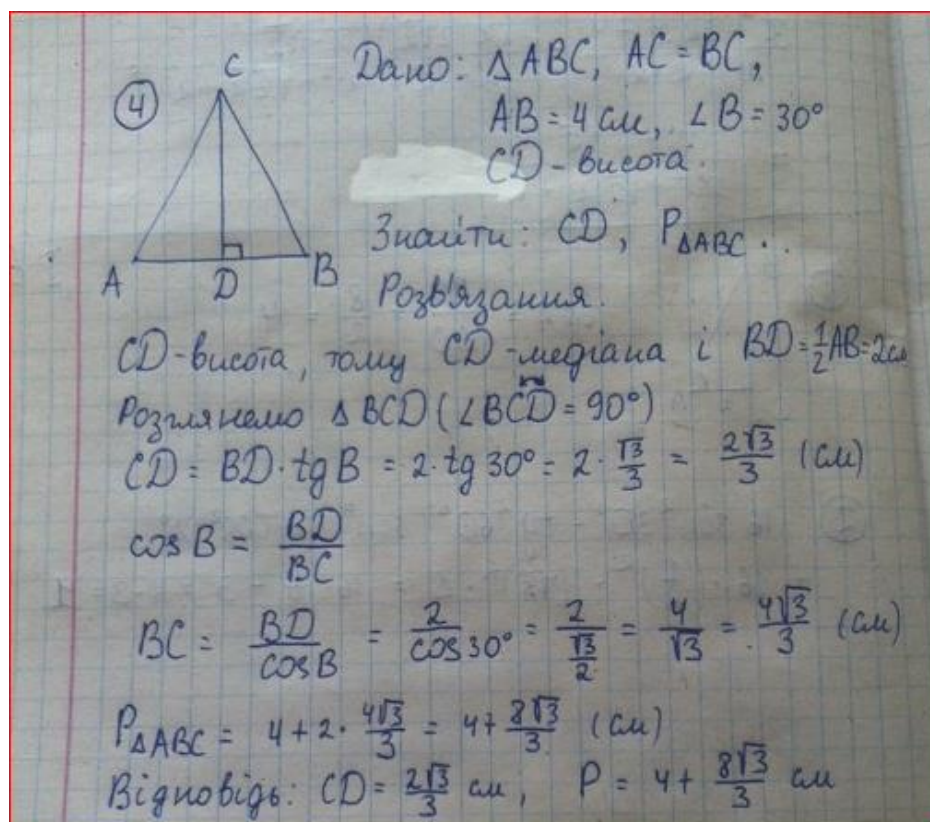 ④
C
A
D
B
Дано: △ABC, AC = BC,
AB = 4 см, ∠B = 30°
CD - висота.
Знайти: CD, P△ABC ..
Розв'язання.
CD - висота, тому CD - медіана і BD = 1/2 AB = 2 см
Розглянемо △BCD (∠BCD = 90°)
CD = BD · tg B = 2 · tg 30° = 2 · √3/3 = 2√3/3 (см)
cos B = BD/BC
BC = BD/cosB = 2/cos 30° = 2/(√3/2) = 4/√3 = 4√3/3 (см)
P△ABC = 4 + 2 · 4√3/3 = 4 + 8√3/3 (см)
Відповідь: CD = 2√3/3 см, P = 4 + 8√3/3 см